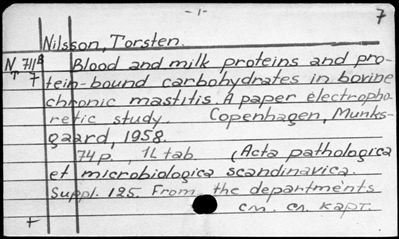 -1-
7
Nilsson, Torsten.
N 711⁸ Blood and milk proteins and pro-
7 tein-bound carbohydrates in bovine
chronic mastitis. A paper electropho-
retic study. Copenhagen, Munks-
gaard, 1958.
74 p., 1L tab. (Acta pathologica
et microbiologica scandinavica.
Suppl. 125. From the departments
см. сл. карт.
+